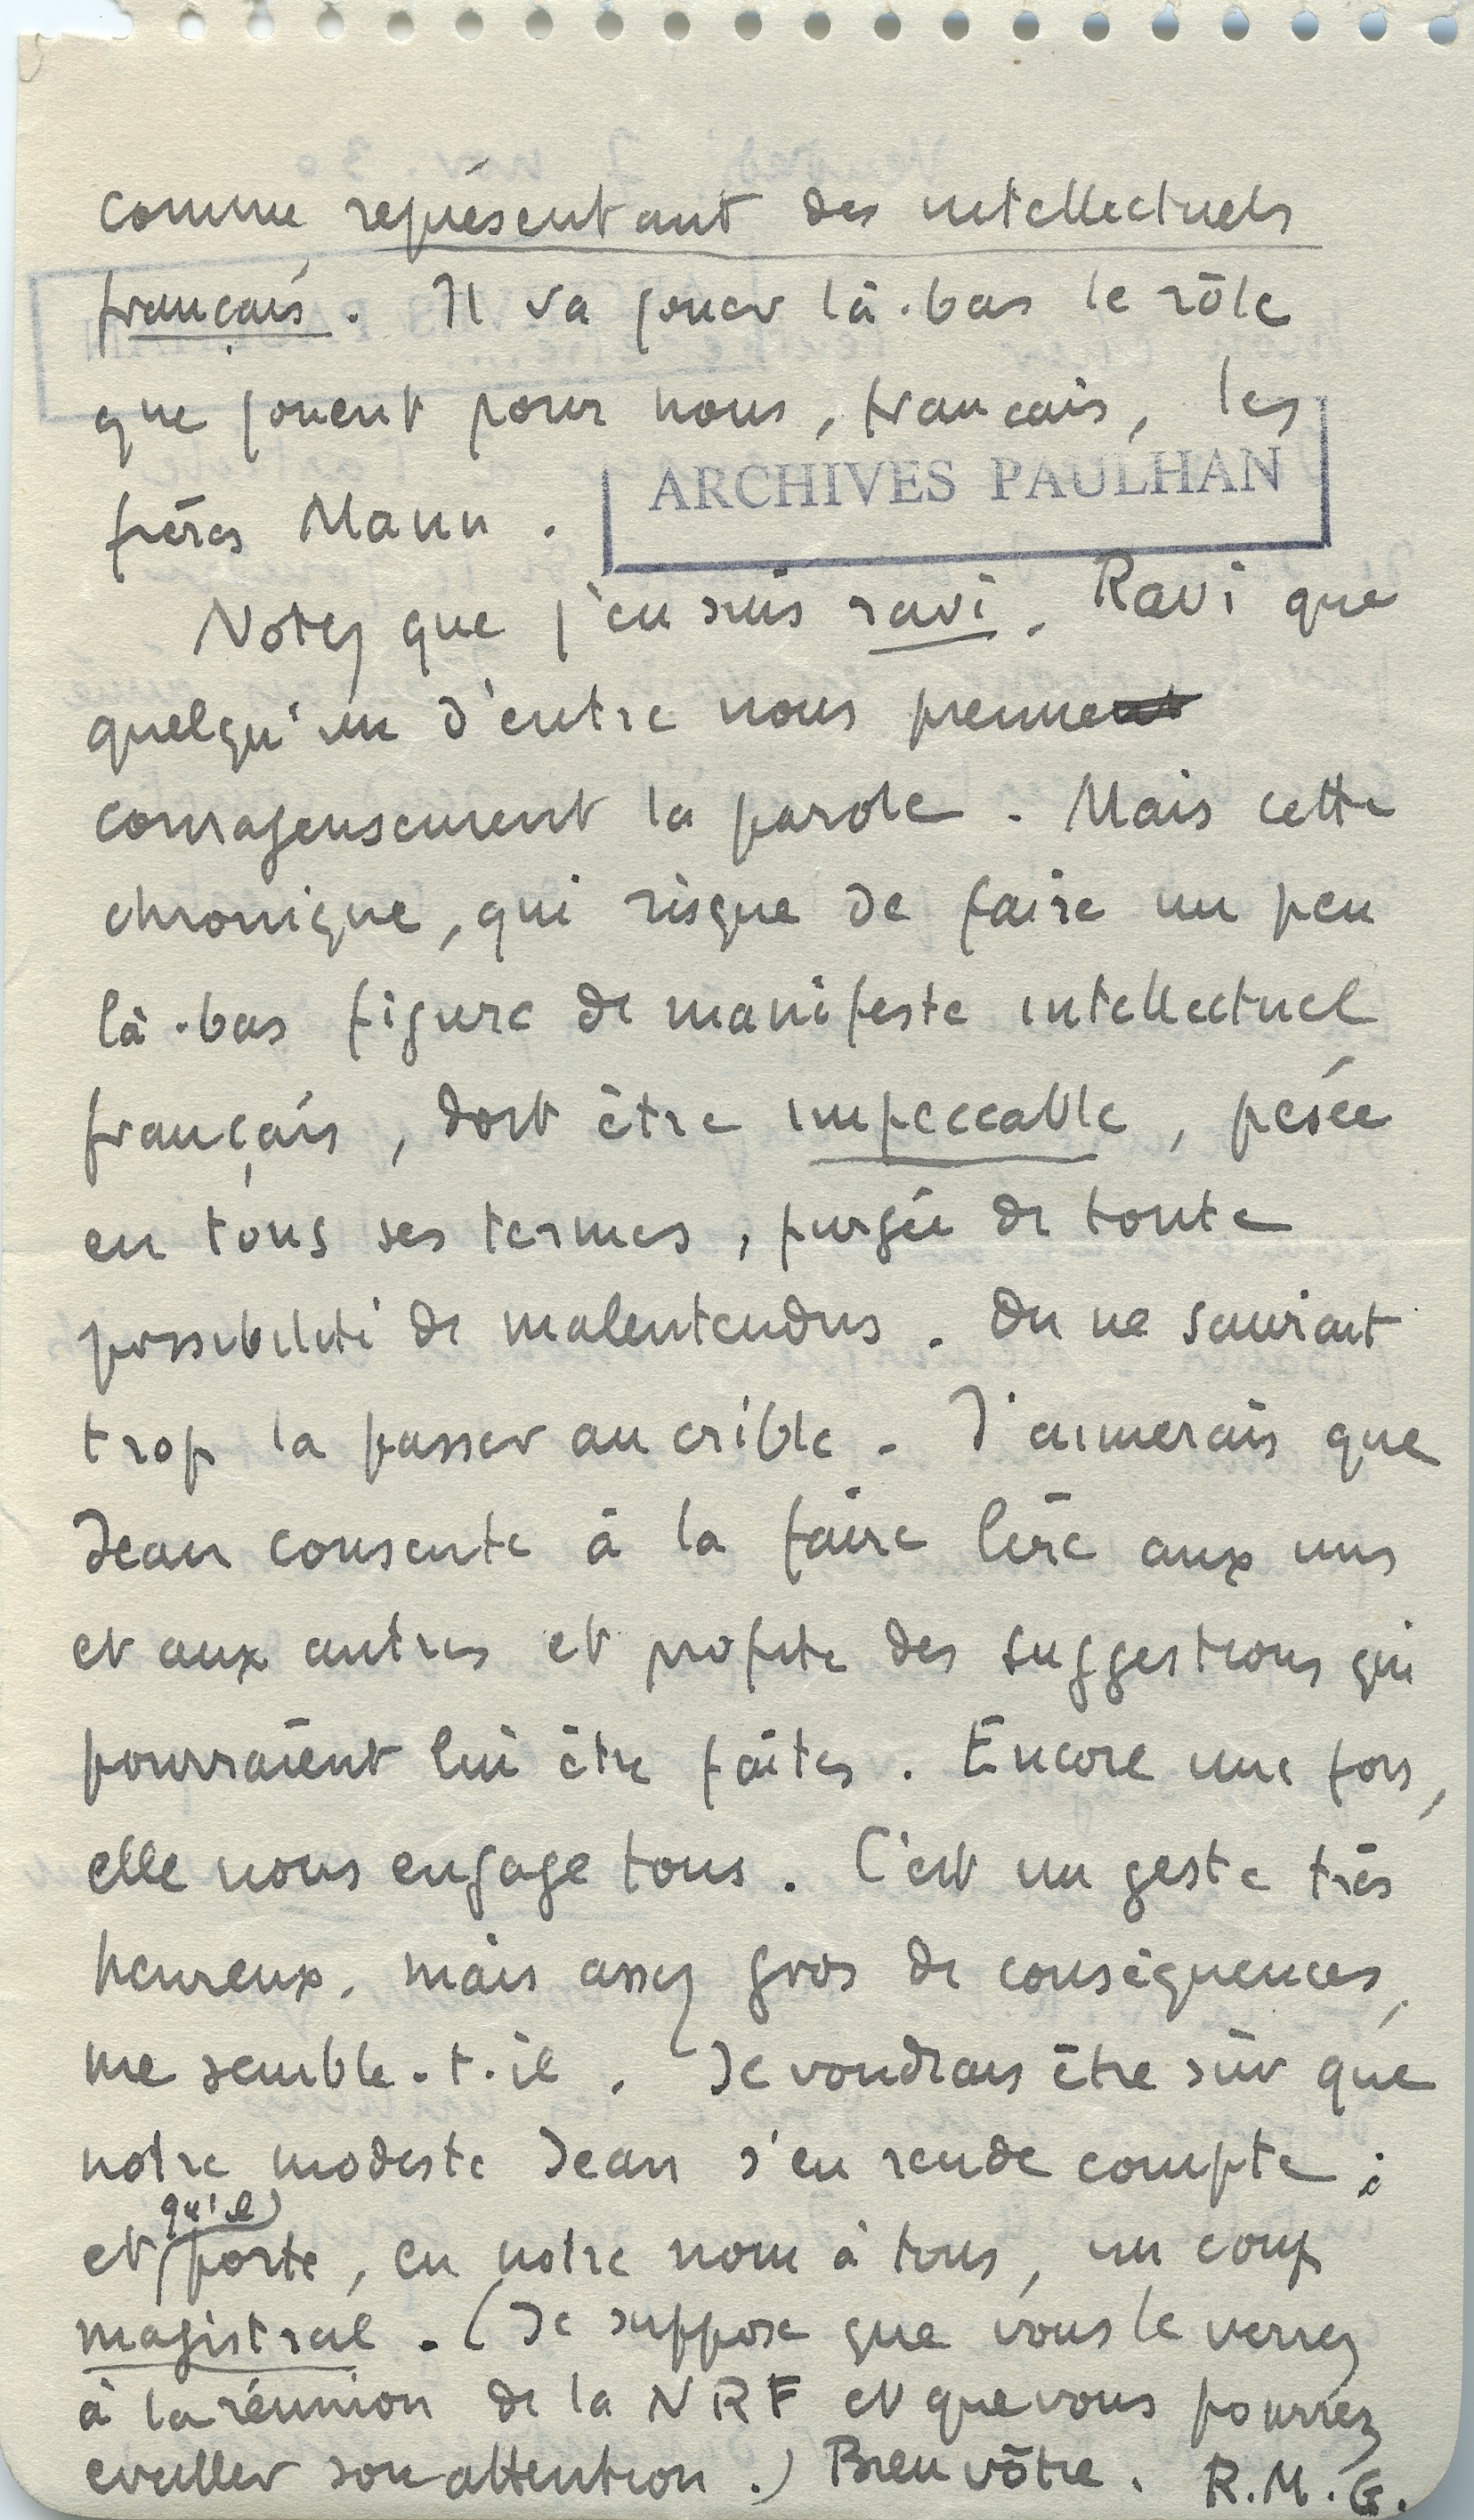 comme représentant des intellectuels
français. Il va jouer là-bas le rôle
que jouent pour nous, francais, les
frères Mann.
ARCHIVES PAULHAN
Notez que j'en suis ravi. Ravi que
quelqu'un d'entre nous prenne
courageusement la parole. Mais cette
chronique, qui risque de faire un peu
là-bas figure de manifeste intellectuel
français, doit être impeccable, pesée
en tous ses termes, purgée de toute
possibilité de malentendus. On ne saurait
trop la passer au crible. J'aimerais que
Jean consente à la faire lire aux uns
et aux autres et profite des suggestions qui
pourraient lui être faites. Encore une fois,
elle nous engage tous. C'est un geste très
heureux, mais assez gros de conséquences,
me semble-t-il. Je voudrais être sûr que
notre modeste Jean s'en rende compte ;
et qu'il porte, en notre nom à tous, un coup
magistral. (Je suppose que vous le verrez
à la réunion de la NRF et que vous pourrez
eveiller son attention.) Bien vôtre. R.M.G.